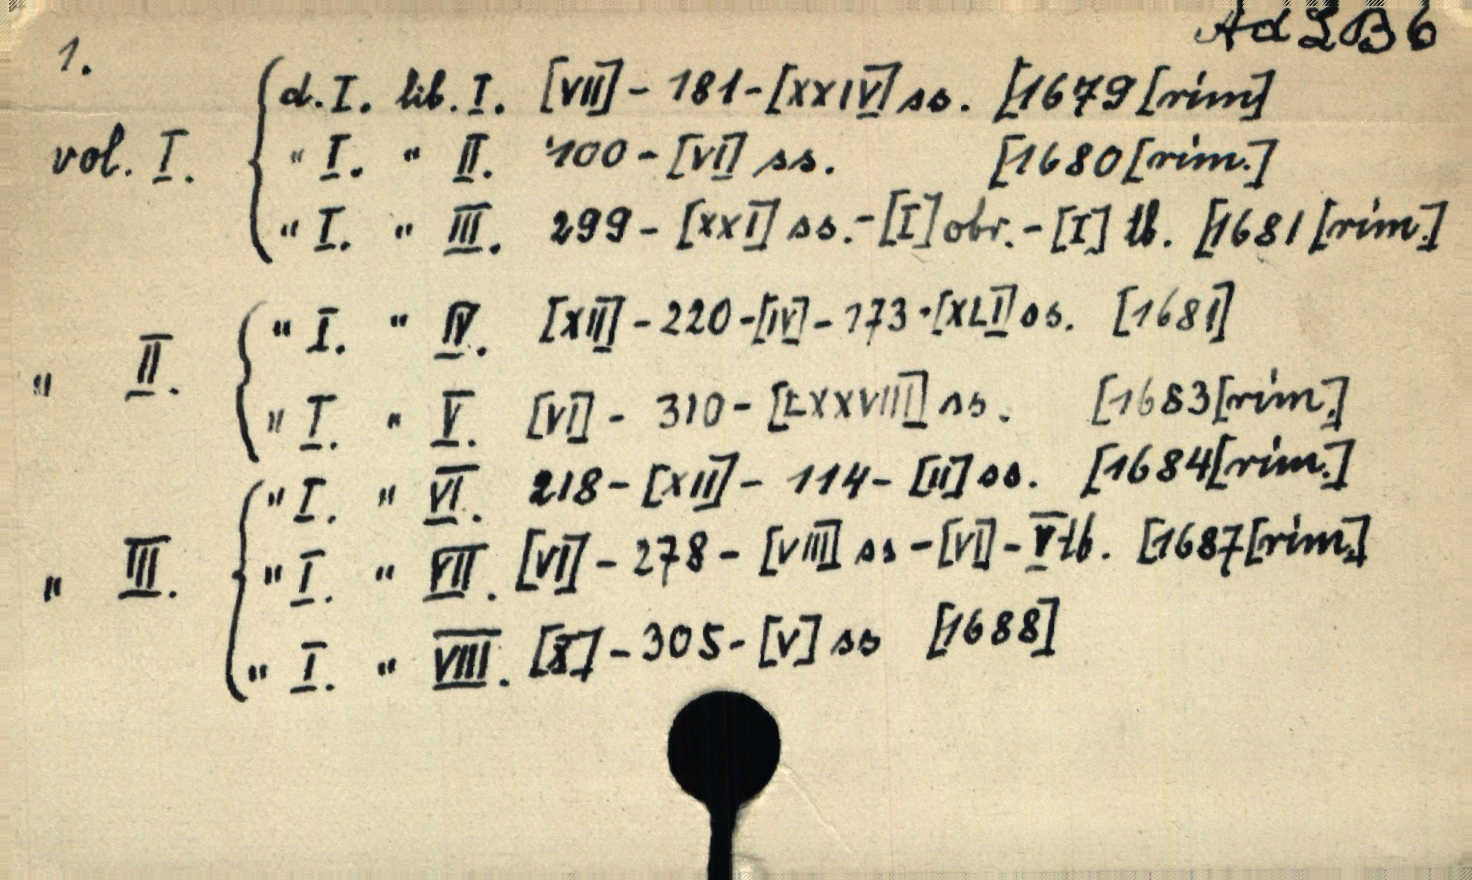 Ad L B 6
1.
vol. I. d. I. lib. I. [VII] - 181 - [XXIV] ss. [1679 [rim]
" I. " II. 100 - [VI] ss. [1680 [rim.]
" I. " III. 299 - [XXI] ss. - [I] obr. - [I] tb. [1681 [rim.]
" II. " I. " IV. [XII] - 220 - [IV] - 173 - [XLI] ss. [1681]
" I. " V. [VI] - 310 - [LXXVIII] ss. [1683 [rim.]
" I. " VI. 218 - [XII] - 114 - [II] ss. [1684 [rim.]
" III. " I. " VII. [VI] - 278 - [VIII] ss - [VI] - V tb. [1687 [rim.]
" I. " VIII. [X] - 305 - [V] ss [1688]